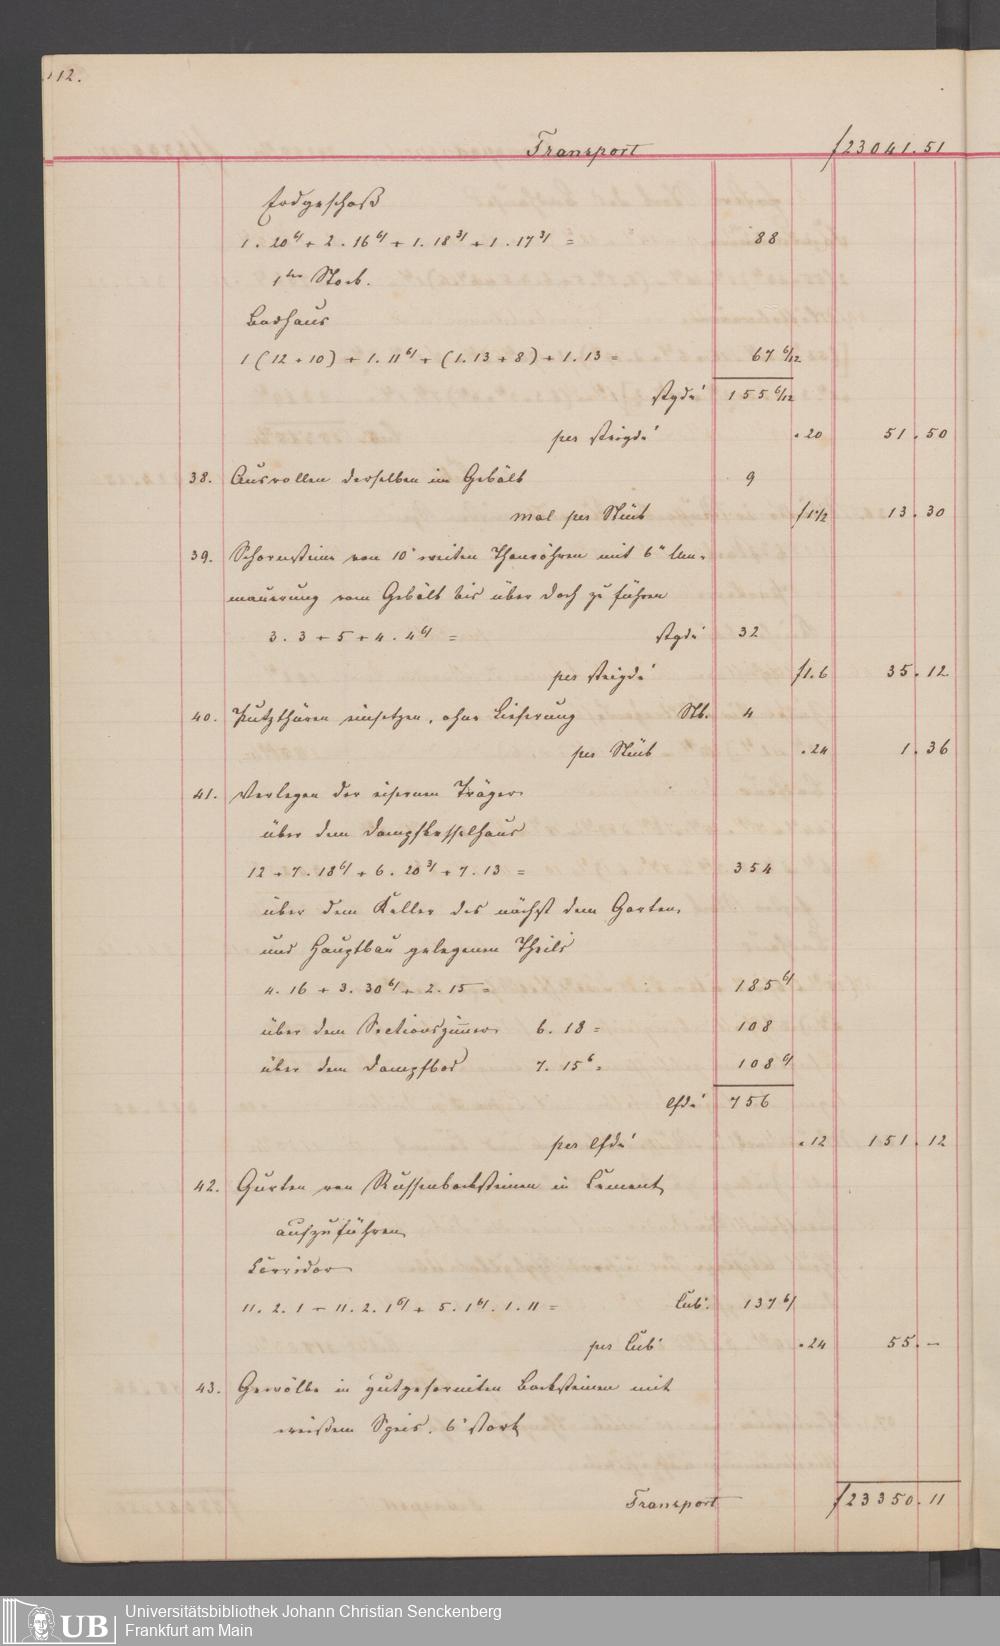 112.
Transport f 23041. 51
Erdgeschoß
1. 20 6/ + 2. 16 6/ + 1. 18 3/ + 1. 17 3/ = 88
1ter Stock.
Badhaus
1 (12 + 10) + 1. 11 6/ + (1. 13 + 8) + 1. 13 = 67 6/12
stgd.' 155 6/12
per steigd.' . 20 51. 50
38. Ausrollen derselben im Gebälk 9
mal per Stück f 1 1/2 13. 30
39. Schornsteine von 10" weiten Thonröhren mit 6" Um-
mauerung vom Gebälk bis über Dach zu führen
3. 3 + 5 + 4. 4 6/ = stgd.' 32
per steigd.' f 1. 6 35. 12
40. Putzthüren einsetzen, ohne Lieferung Stk. 4
per Stück . 24 1. 36
41. Verlegen der eisernen Träger
über dem Dampfkesselhaus
12 + 7. 18 6/ + 6. 20 3/ + 7. 13 = 354
über dem Keller des nächst dem Garten
und Hauptbau gelegenen Theils
4. 16 + 3. 30 6/ + 2. 15 = 185 6/
über dem Sectionszimmer 6. 18 = 108
über dem Dampfbad 7. 15 6 = 108 6/
lfd.' 756
per lfd.' . 12 151. 12
42. Gurten von Russenbacksteinen in Cement
aufzuführen
Corridor
11. 2. 1 + 11. 2. 1 6/ + 5. 1 6/. 1. 11 = Cub.' 137 6/
per Cub.' . 24 55. —
43. Gewölbe in gutgeformten Backsteinen mit
weißem Speis. 6" stark
Transport f 23350. 11
UB
Universitätsbibliothek Johann Christian Senckenberg
Frankfurt am Main